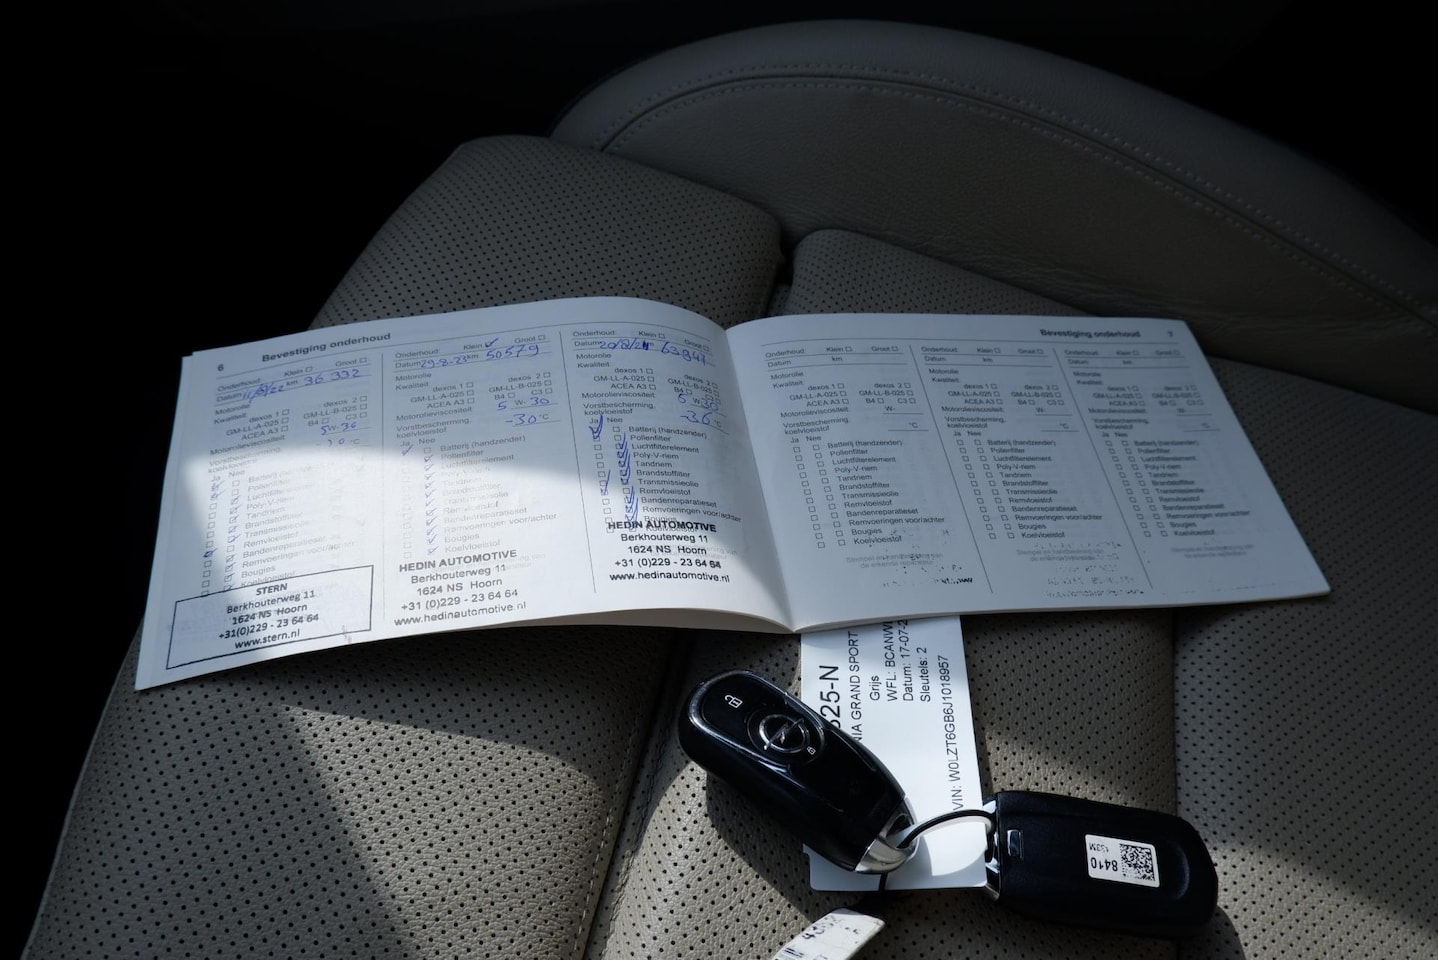 6 Bevestiging onderhoud
Onderhoud: Klein ☐ Groot ☐
km 36 332
Motorolie
Kwaliteit: dexos 1 ☐ dexos 2 ☐
GM-LL-A-025 ☐ GM-LL-B-025 ☐
ACEA A3 ☐ B4 ☐ C3 ☐
Motorolieviscositeit: 5 W- 30
Vorstbescherming,
koelvloeistof °C
Ja Nee
Batterij
Pollenfilter
Tandriem
Brandstoffilter
Bougies
Koelvloeistof
STERN
Berkhouterweg 11
1624 NS Hoorn
+31(0)229 - 23 64 64
www.stern.nl
Onderhoud: Klein ✓ Groot ☐
Datum 29-8-23 km 50579
Motorolie
Kwaliteit: dexos 1 ☐ dexos 2 ☐
GM-LL-A-025 ☐ GM-LL-B-025 ☐
ACEA A3 ☐ B4 ☐ C3 ☐
Motorolieviscositeit: 5 W- 30
Vorstbescherming,
koelvloeistof -30 °C
Ja Nee
Batterij (handzender)
Pollenfilter
Luchtfilterelement
Poly-V-riem
Tandriem
Brandstoffilter
Transmissieolie
Remvloeistof
Bandenreparatieset
Remvoeringen voor/achter
Bougies
Koelvloeistof
HEDIN AUTOMOTIVE
Berkhouterweg 11
1624 NS Hoorn
+31 (0)229 - 23 64 64
www.hedinautomotive.nl
Onderhoud: Klein ☐ Groot ☐
Datum km
Motorolie
Kwaliteit: dexos 1 ☐ dexos 2 ☐
GM-LL-A-025 ☐ GM-LL-B-025 ☐
ACEA A3 ☐ B4 ☐ C3 ☐
Motorolieviscositeit: 5 W- 30
Vorstbescherming,
koelvloeistof -36 °C
Ja Nee
Batterij (handzender)
Pollenfilter
Luchtfilterelement
Poly-V-riem
Tandriem
Brandstoffilter
Transmissieolie
Remvloeistof
Bandenreparatieset
Remvoeringen voor/achter
Bougies
Koelvloeistof
HEDIN AUTOMOTIVE
Berkhouterweg 11
1624 NS Hoorn
+31 (0)229 - 23 64 64
www.hedinautomotive.nl
Bevestiging onderhoud 7
Onderhoud: Klein ☐ Groot ☐
Datum km
Motorolie
Kwaliteit: dexos 1 ☐ dexos 2 ☐
GM-LL-A-025 ☐ GM-LL-B-025 ☐
ACEA A3 ☐ B4 ☐ C3 ☐
Motorolieviscositeit: W-
Vorstbescherming,
koelvloeistof °C
Ja Nee
☐ ☐ Batterij (handzender)
☐ ☐ Pollenfilter
☐ ☐ Luchtfilterelement
☐ ☐ Poly-V-riem
☐ ☐ Tandriem
☐ ☐ Brandstoffilter
☐ ☐ Transmissieolie
☐ ☐ Remvloeistof
☐ ☐ Bandenreparatieset
☐ ☐ Remvoeringen voor/achter
☐ ☐ Bougies
☐ ☐ Koelvloeistof
Onderhoud: Klein ☐ Groot ☐
Datum km
Motorolie
Kwaliteit: dexos 1 ☐ dexos 2 ☐
GM-LL-A-025 ☐ GM-LL-B-025 ☐
ACEA A3 ☐ B4 ☐ C3 ☐
Motorolieviscositeit: W-
Vorstbescherming,
koelvloeistof °C
Ja Nee
☐ ☐ Batterij (handzender)
☐ ☐ Pollenfilter
☐ ☐ Luchtfilterelement
☐ ☐ Poly-V-riem
☐ ☐ Tandriem
☐ ☐ Brandstoffilter
☐ ☐ Transmissieolie
☐ ☐ Remvloeistof
☐ ☐ Bandenreparatieset
☐ ☐ Remvoeringen voor/achter
☐ ☐ Bougies
☐ ☐ Koelvloeistof
Onderhoud: Klein ☐ Groot ☐
Datum km
Motorolie
Kwaliteit: dexos 1 ☐ dexos 2 ☐
GM-LL-A-025 ☐ GM-LL-B-025 ☐
ACEA A3 ☐ B4 ☐ C3 ☐
Motorolieviscositeit: W-
Vorstbescherming,
koelvloeistof °C
Ja Nee
☐ ☐ Batterij (handzender)
☐ ☐ Pollenfilter
☐ ☐ Luchtfilterelement
☐ ☐ Poly-V-riem
☐ ☐ Tandriem
☐ ☐ Brandstoffilter
☐ ☐ Transmissieolie
☐ ☐ Remvloeistof
☐ ☐ Bandenreparatieset
☐ ☐ Remvoeringen voor/achter
☐ ☐ Bougies
☐ ☐ Koelvloeistof
25-N
NIA GRAND SPORT
Grijs
WFL: BCANW
Datum: 17-07-2
Sleutels: 2
VIN: W0LZT6GB6J1018957
8410
133M